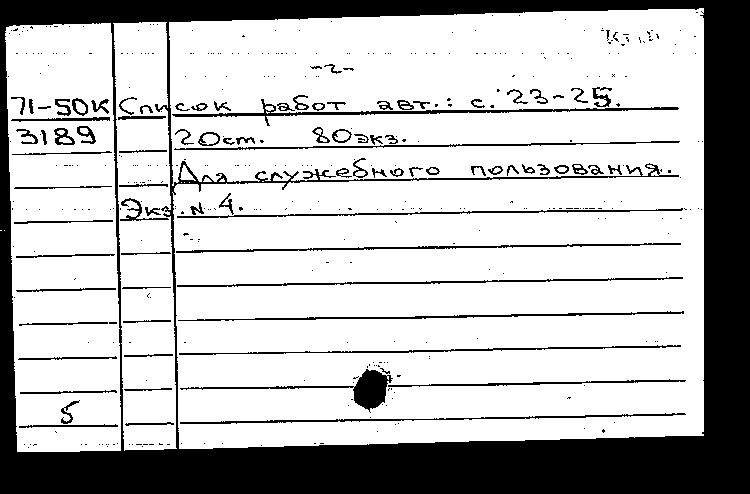 -2-
71-50К Список работ авт.: с. 23-25.
3189 20ст. 80экз.
Для служебного пользования.
Экз. N 4.
5